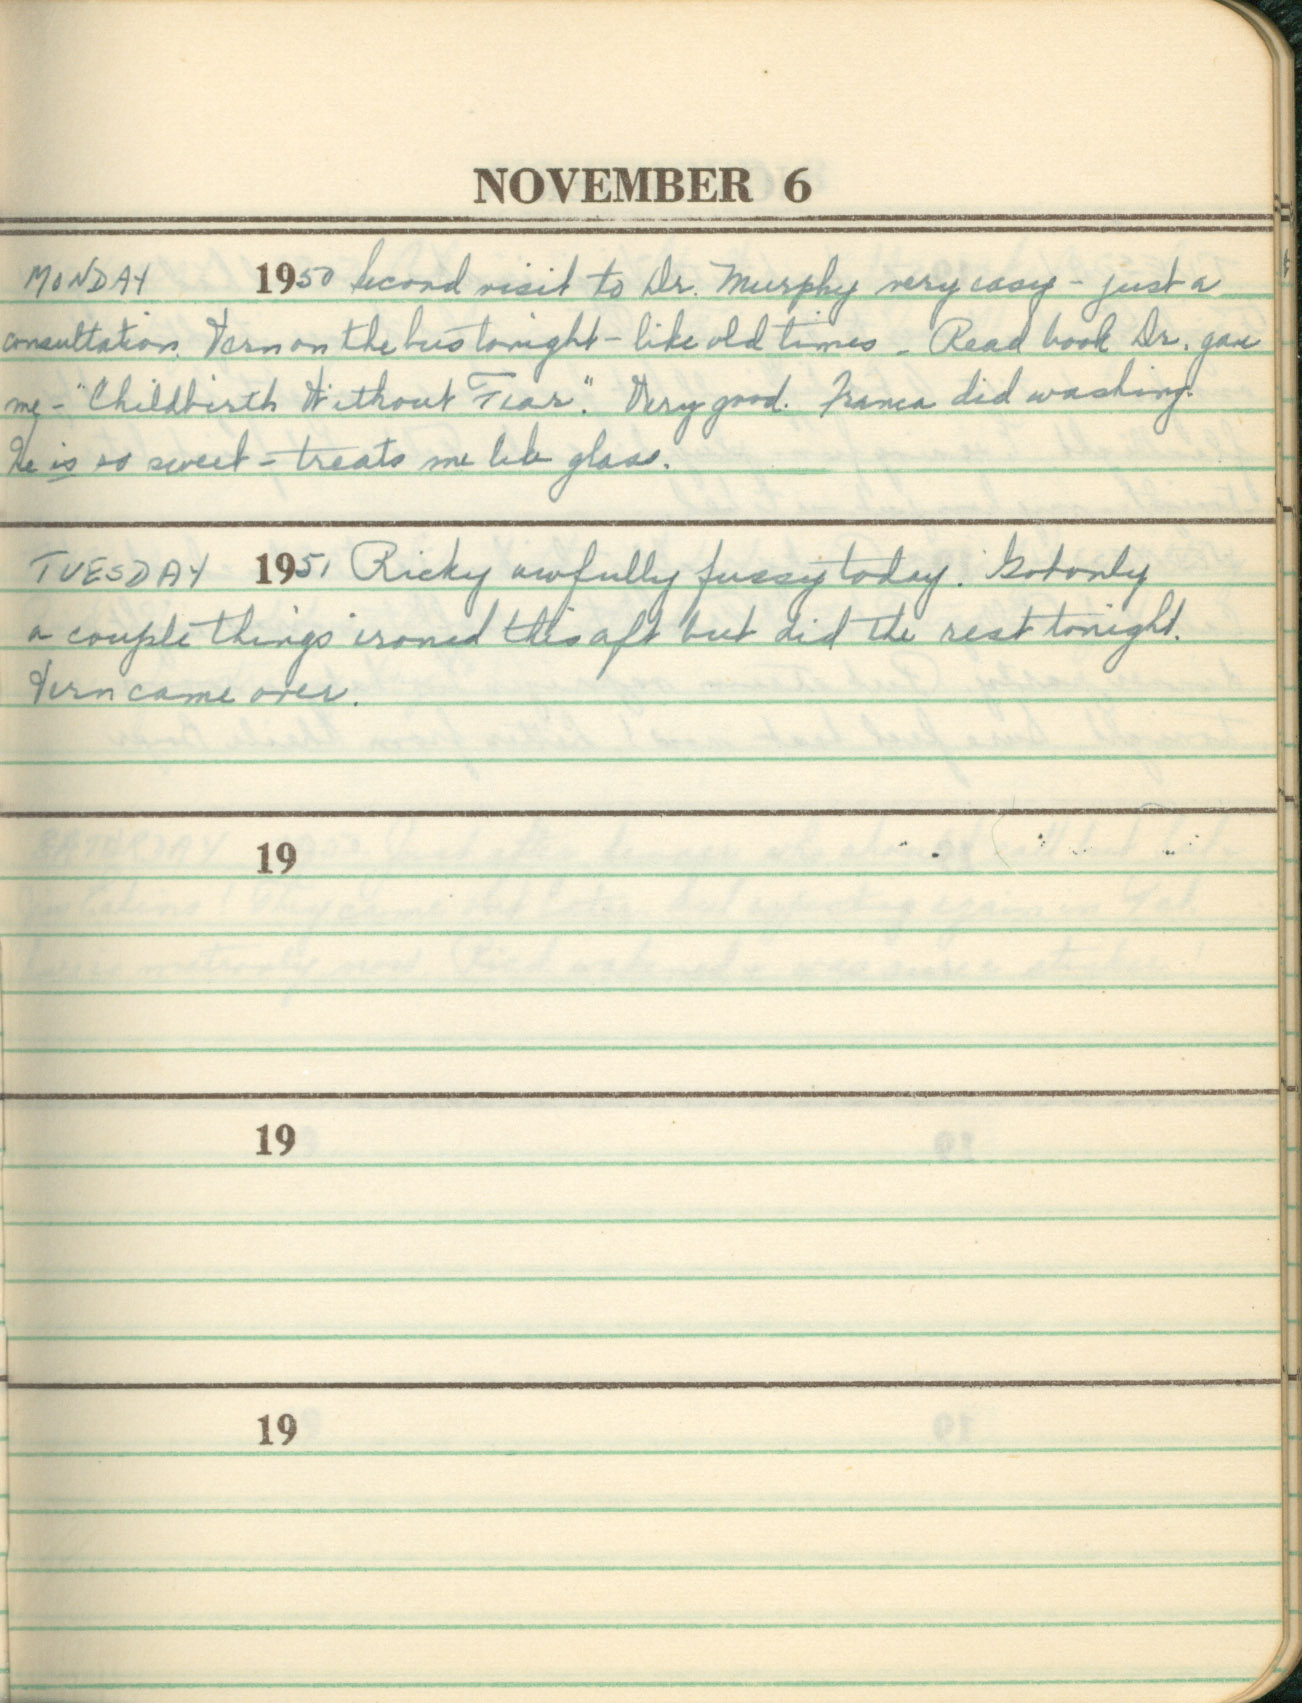 NOVEMBER 6
MONDAY 1950 Second visit to Dr. Murphy very easy - just a
consultation. Vern on the bus tonight - like old times - Read book Dr. gave
me - "Childbirth Without Fear". Very good. did washing.
He is so sweet - treats me like glass.
TUESDAY 1951 Ricky awfully fussy today. Got only
a couple things ironed this aft but did the rest tonight.
Vern came over.
19
19
19